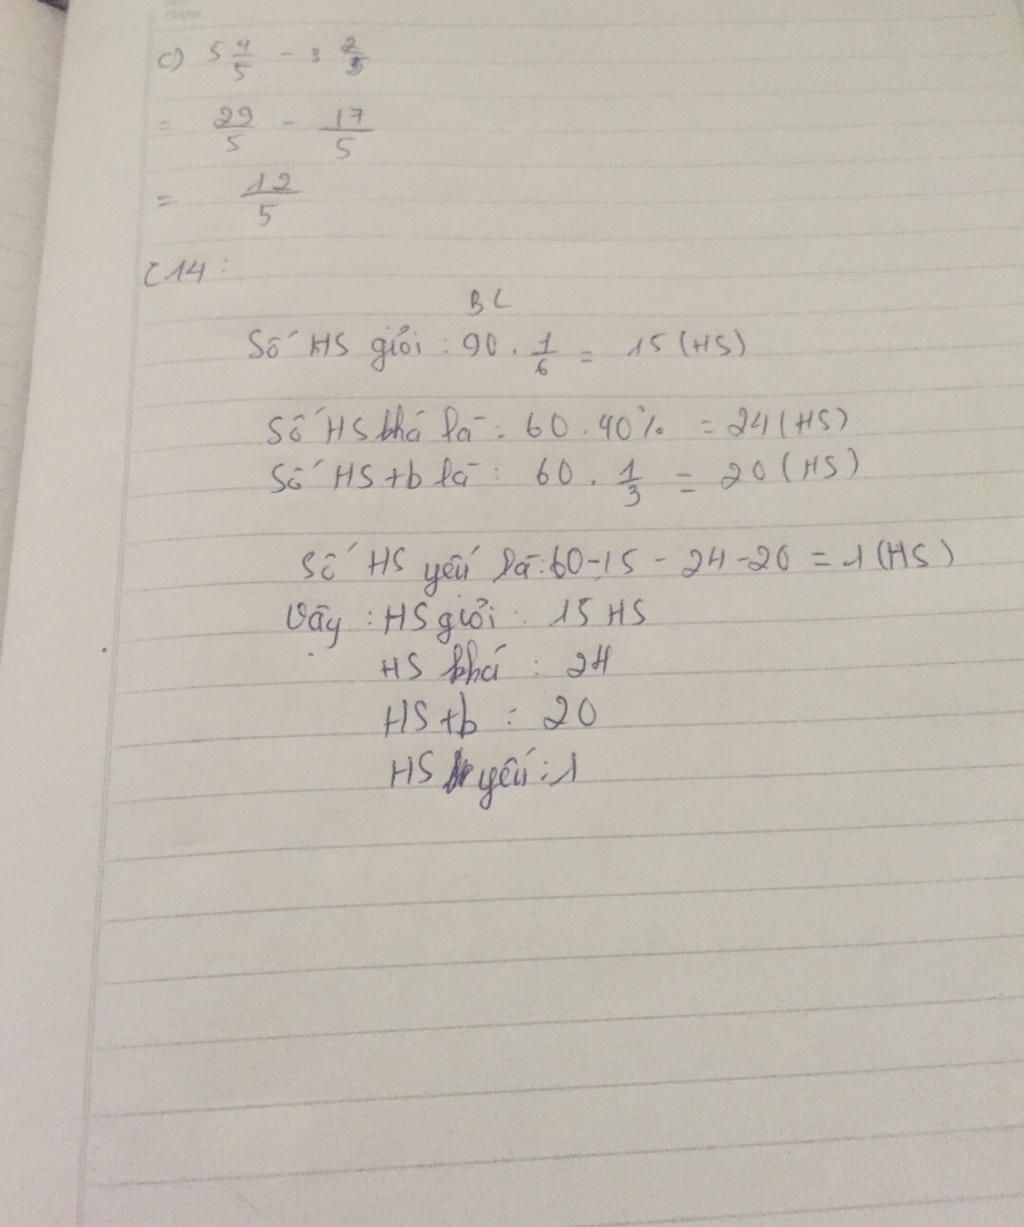 c) 5 4/5 - 3 2/5
= 29/5 - 17/5
= 12/5
C14:
BL
Số HS giỏi : 90 . 1/6 = 15 (HS)
Số HS khá là : 60 . 40% = 24 (HS)
Số HS tb là : 60 . 1/3 = 20 (HS)
Số HS yếu là : 60 - 15 - 24 - 20 = 1 (HS)
Vậy : HS giỏi : 15 HS
HS khá : 24
HS tb : 20
HS yếu : 1